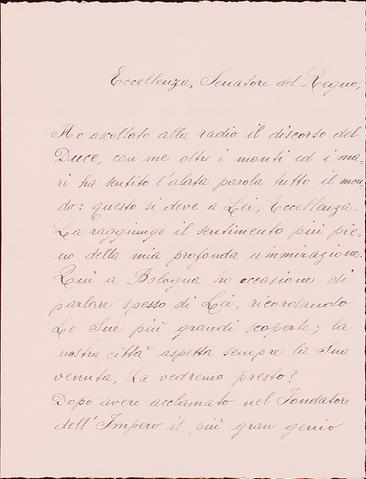 Eccellenza, Senatore del Regno,
Ho ascoltato alla radio il discorso del
Duce, con me oltre i monti ed i ma-
ri ha sentito l'alata parola tutto il mon
do: questo si deve a Lei, Eccellenza.
La raggiunge il sentimento più pie
no della mia profonda ammirazione.
Qui a Bologna ho occasione di
parlare spesso di Lei, ricordando
Le Sue più grandi scoperte; la
nostra città aspetta sempre la Sua
venuta, La vedremo presto?
Dopo avere acclamato nel Fondatore
dell'Impero il più gran genio